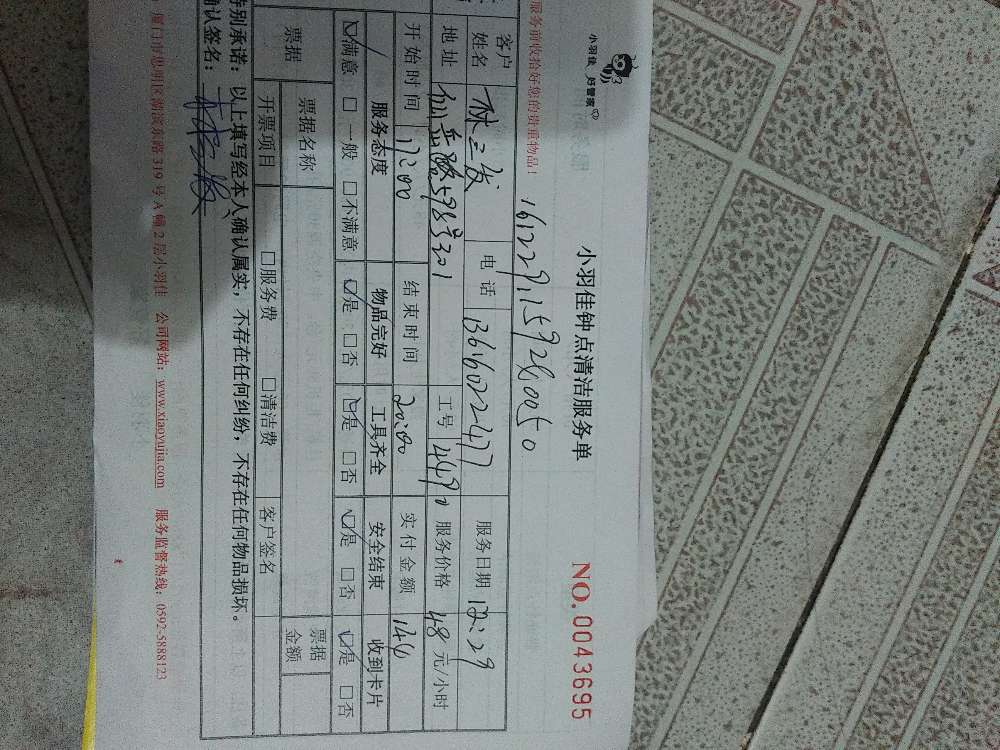 小羽佳 好管家
小羽佳钟点清洁服务单
NO.0043695
服务前收拾好您的贵重物品!
161229159280050
客户姓名 林三发 电话 13616022477 服务日期 12:29
地址 仙岳路598号301 工号 1449 服务价格 48 元/小时
开始时间 17:00 结束时间 20:00 实付金额 144
服务态度 物品完好 工具齐全 安全结束 收到卡片
☑满意 □一般 □不满意 ☑是 □否 ☑是 □否 ☑是 □否 ☑是 □否
票据 票据名称 票据金额
开票项目 □服务费 □清洁费 客户签名
特别承诺:以上填写经本人确认属实,不存在任何纠纷,不存在任何物品损坏。
确认签名:
厦门市思明区湖滨东路319号A幢2层小羽佳 公司网站:www.xiaoyujia.com 服务监督热线:0592-5888123